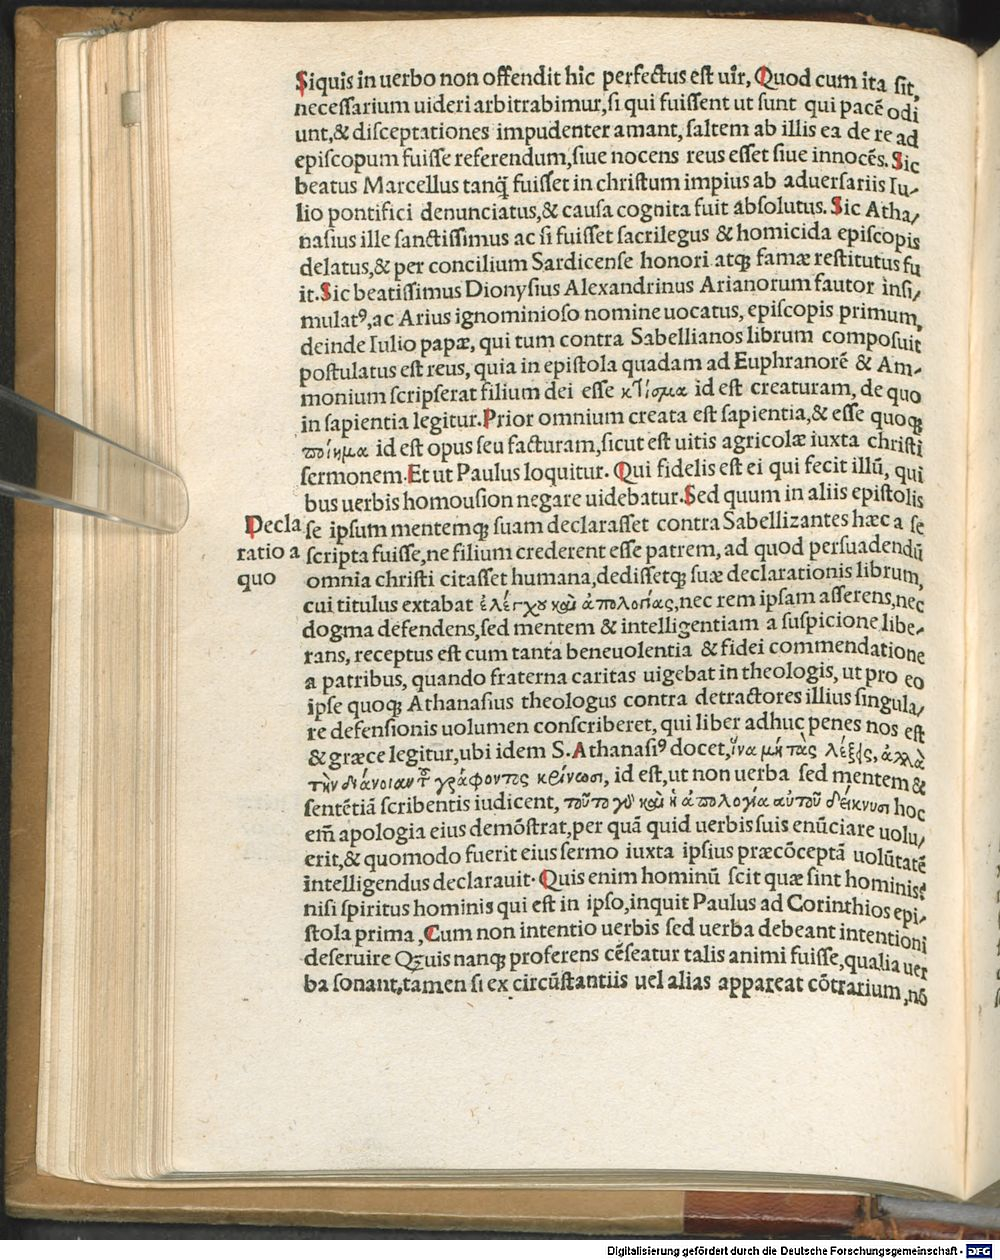 Siquis in uerbo non offendit hic perfectus est uir, Quod cum ita sit,
necessarium uideri arbitrabimur, si qui fuissent ut sunt qui pacē odi
unt, & disceptationes impudenter amant, saltem ab illis ea de re ad
episcopum fuisse referendum, siue nocens reus esset siue innocēs. Sic
beatus Marcellus tanq̃ fuisset in christum impius ab aduersariis Iu-
lio pontifici denunciatus, & causa cognita fuit absolutus. Sic Atha/
nasius ille sanctissimus ac si fuisset sacrilegus & homicida episcopis
delatus, & per concilium Sardicense honori atqꝫ famæ restitutus fu
it. Sic beatissimus Dionysius Alexandrinus Arianorum fautor insi/
mulatꝰ, ac Arius ignominioso nomine uocatus, episcopis primum,
deinde Iulio papæ, qui tum contra Sabellianos librum composuit
postulatus est reus, quia in epistola quadam ad Euphranorē & Am-
monium scripserat filium dei esse κτίσμα id est creaturam, de quo
in sapientia legitur. Prior omnium creata est sapientia, & esse quoqꝫ
ποίημα id est opus seu facturam, sicut est uitis agricolæ iuxta christi
sermonem. Et ut Paulus loquitur. Qui fidelis est ei qui fecit illū, qui
bus uerbis homousion negare uidebatur. Sed quum in aliis epistolis
Decla
ratio a
quo
se ipsum mentemqꝫ suam declarasset contra Sabellizantes hæc a se
scripta fuisse, ne filium crederent esse patrem, ad quod persuadendū
omnia christi citasset humana, dedissetqꝫ suæ declarationis librum,
cui titulus extabat ἐλέγχου καὶ ἀπολογίας, nec rem ipsam asserens, nec
dogma defendens, sed mentem & intelligentiam a suspicione libe-
rans, receptus est cum tanta beneuolentia & fidei commendatione
a patribus, quando fraterna caritas uigebat in theologis, ut pro eo
ipse quoqꝫ Athanasius theologus contra detractores illius singula/
re defensionis uolumen conscriberet, qui liber adhuc penes nos est
& græce legitur, ubi idem S. Athanasiꝰ docet, ἵνα μὴ τὰς λέξεις, ἀλλὰ
τὴν διάνοιαν τ͂ γράφοντος κρίνωσι, id est, ut non uerba sed mentem &
sentētiā scribentis iudicent, τοῦτο γὸ καὶ ἡ ἀπολογία αὐτοῦ δείκνυσι hoc
em̄ apologia eius demōstrat, per quā quid uerbis suis enūciare uolu/
erit, & quomodo fuerit eius sermo iuxta ipsius præcōceptā uolūtatē
intelligendus declarauit. Quis enim hominū scit quæ sint hominis?
nisi spiritus hominis qui est in ipso, inquit Paulus ad Corinthios epi-
stola prima, Cum non intentio uerbis sed uerba debeant intentioni
deseruire Qꝫuis nanqꝫ proferens cēseatur talis animi fuisse, qualia uer
ba sonant, tamen si ex circūstantiis uel alias appareat cōtrarium, nō
Digitalisierung gefördert durch die Deutsche Forschungsgemeinschaft - DFG